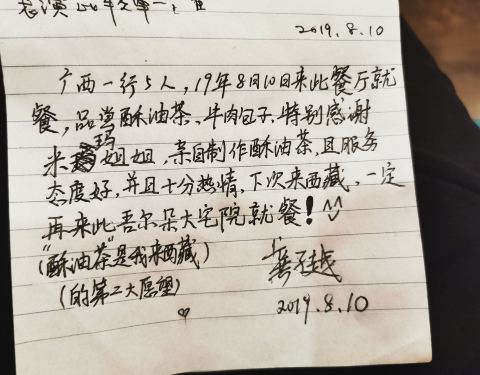 2019.8.10
广西一行5人,19年8月10日来此餐厅就
餐,品尝酥油茶、牛肉包子.特别感谢
米玛姐姐,亲自制作酥油茶,且服务
态度好,并且十分热情,下次来西藏,一定
再来此吾尔朵大宅院就餐!
("酥油茶"是我来西藏)
(的第二大愿望)
2019.8.10